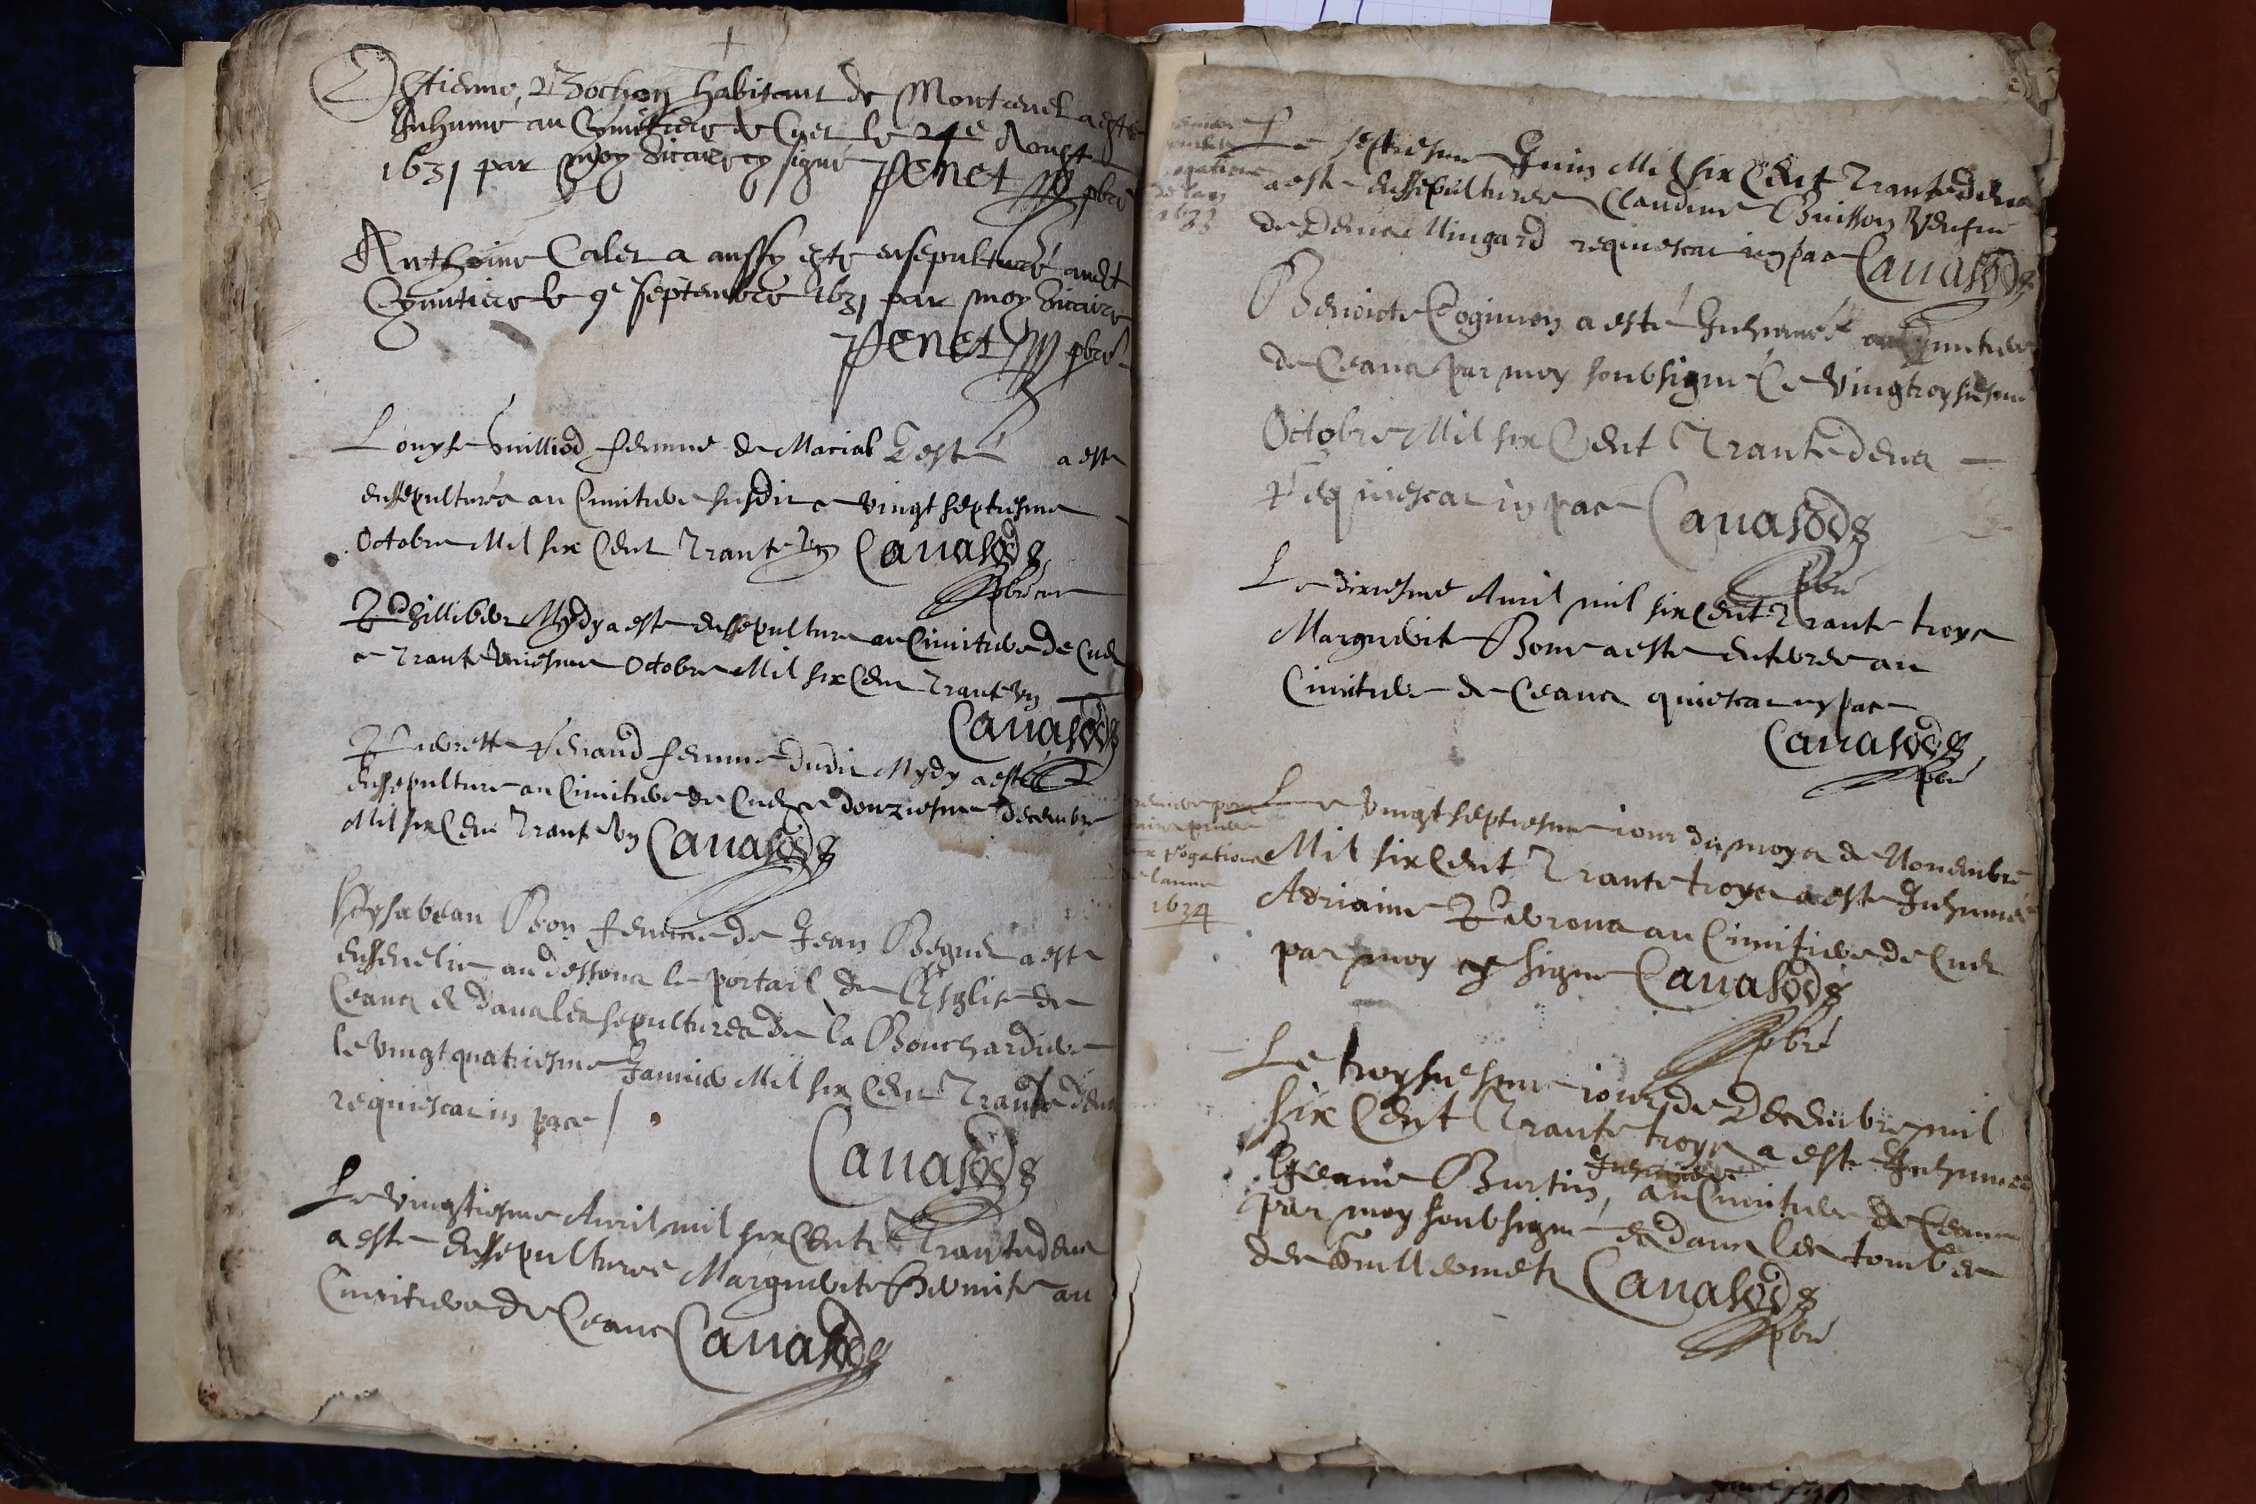 Estienne Bochon habitant de Montanel a esté
Inhumé au Cymitiere de Cuet le 21e Aoust
1631 par Moy vicaire cy signé Penet pbre
Anthoine Calet a aussy esté ensepulturé audt
Cymitiere le 9e septembre 1631 par moy vicaire
Penet pbre
Louyse Vuilliod femme de Marial Testé a este
ensepulturée au Cimitiere susdit ce vingt septiesme
Octobre Mil six Cent Trante Vng Canasods
pbre
Phillibert Mydy a este ensepulture au Cimitiere de Cuet
ce Trante Vniesme Octobre Mil six Cent Trante Vng
Canasods
Pierrette Renaud femme dudit Mydy a este
ensepulture au Cimitiere de Cuet ce douziesme Decembre
Mil six Cent Trante Vng Canasods
Ysabeau Beon femme de Jean Beguet a este
ensevelie au dessoux le portail de L'Esglise de
Ceans et dans les sepultures de la Bouchardiere
le vingt quatriesme Janvier Mil six Cent Trante deux
requiescat in pace
Canasods
Le vingtiesme Avril mil six Cents Trante deux
a este ensepulturee Marguerite Hermite au
Cimitiere de Ceans Canasods
Le septiesme Juin Mil six Cent Trante deux
a este ensepulturee Claudine Buisson Veufue
de Denis Mingard requiescat in pace Canasods
Benoicte Cognion a esté Inhumée au Cimitiere
de Ceans par moy soubsigné Ce vingt troysiesme
Octobre Mil six Cent Trante deux
Requiescat in pace Canasods
pbre
Le dixiesme Avril mil six Cent Trante troys
Marguerite Bone a este enterree au
Cimitiere de Ceans quiescat in pace
Canasods
pbre
rogations
de lan
1633
Le vingt septiesme iour du moys de Nouembre
Mil six Cent Trante troys a este Inhumée
Adrianne Perrona au Cimitiere de Cuet
par moy cy signe Canasods
pbre
rogations
lanne
1634
Le troysiesme iour de Decembre mil
six Cent Trante troys a este Inhumee
Jeanne Burtin, au Cimitiere de Ceans
par moy soubsigne et dans les tombes
des Guillermet Canasods
pbre